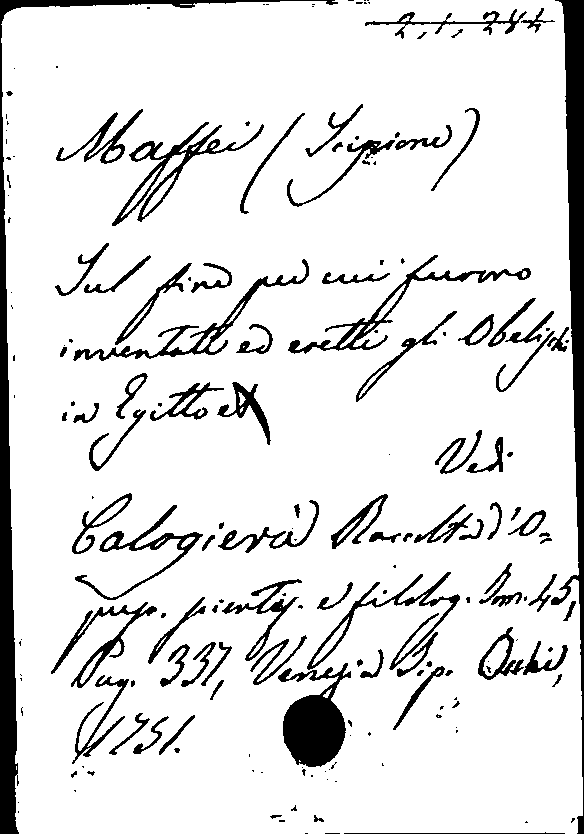 2, 1, 284
Maffei (Scipione)
Sul fine per cui furono
inventati ed eretti gli Obelischi
in Egitto
Vedi
Calogierà Raccolta d'O=
pusc. scientif. e filolog. Tom. 45,
Pag. 337, Venezia Tip. Occhi,
1751.